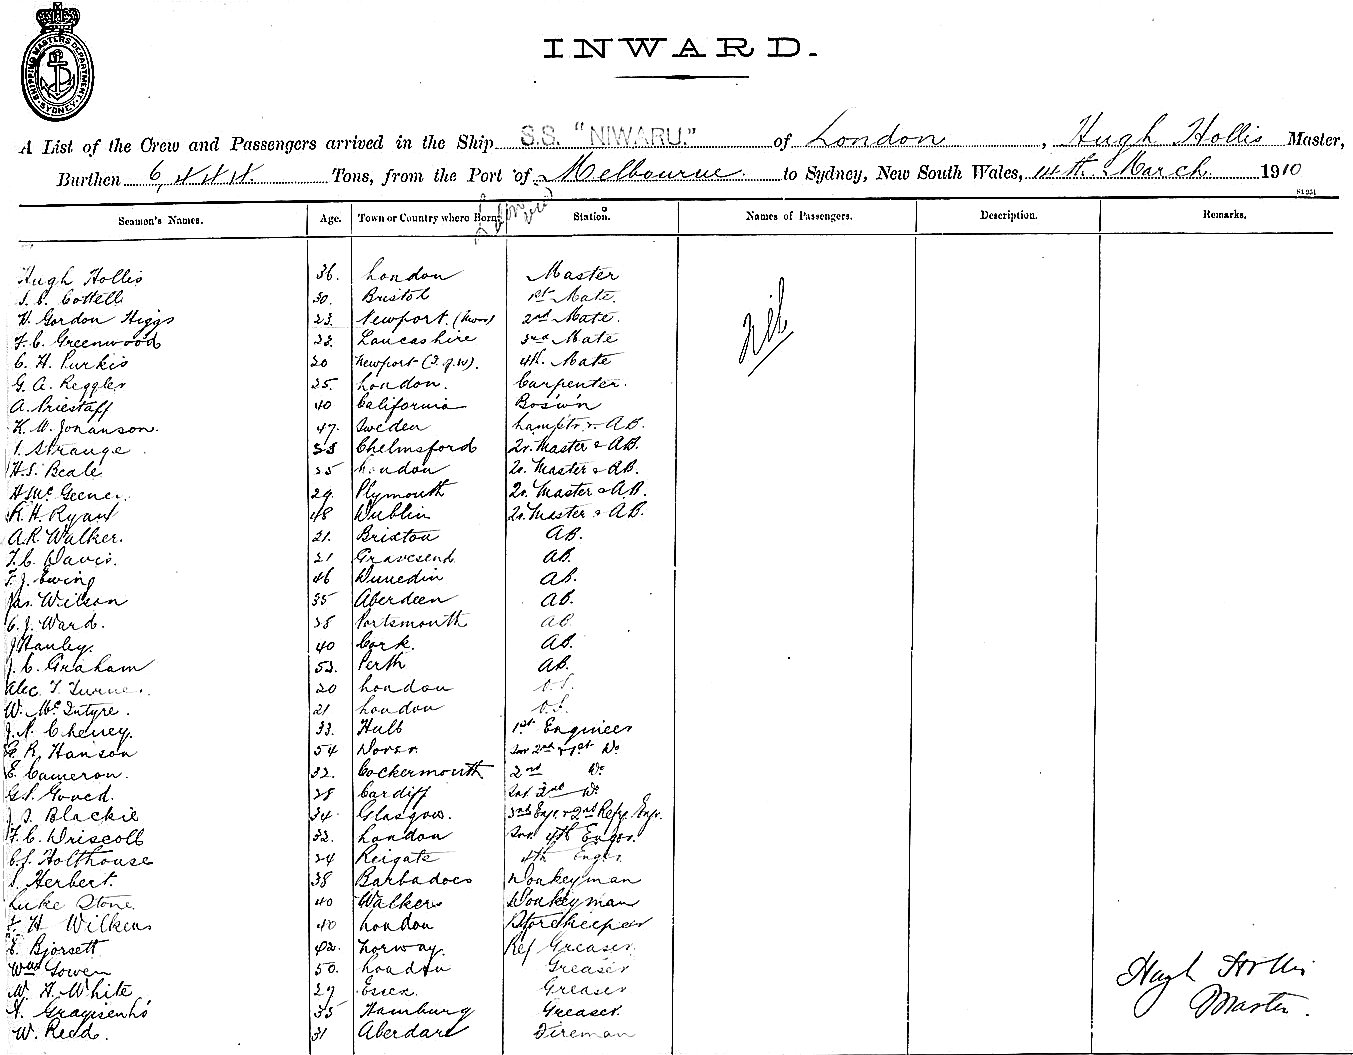 SHIPPING MASTERS DEPARTMENT SYDNEY
INWARD.
A List of the Crew and Passengers arrived in the Ship S.S. "NIWARU." of London, Hugh Hollis Master,
Burthen 6,444 Tons, from the Port of Melbourne to Sydney, New South Wales, 14th March 1910
Seamen's Names. Age. Town or Country where Born. Station. Names of Passengers. Description. Remarks.
Nil
Hugh Hollis 36. London Master
Cottell 30. Bristol 1st Mate.
W. Gordon Higgs 23. Newport. (Mon) 2nd Mate.
F. C. Greenwood 22. Lancashire 3rd Mate
C. H. Purkis 20 Newport (I.O.W). 4th. Mate
G. A. Reggler 25. London. Carpenter.
A. Priestaff 40 California Bos'n
K. W. Johanson. 47. Sweden Lamptr & AB.
Strange 38 Chelmsford Qr. Master & AB.
H.S. Beale 25 London Qr. Master & AB.
29. Plymouth Qr. Master & AB.
R. H. Ryan 48 Dublin Qr. Master & AB.
A.R. Walker. 21. Brixton AB.
T.C. Davis. 21 Gravesend AB.
F. J. Ewing 46 Dunedin AB.
Jas. Wilson 35 Aberdeen AB.
C. J. Ward. 38 Portsmouth AB
J Hanley. 40 Cork. AB.
J. C. Graham 53. Perth AB.
Alec. T. Turner. 20 London O.S.
W. McIntyre. 21 London O.S.
J. N. Cheney. 33. Hull 1st Engineer
G R. Hanson 54 Dover. Do
E. Cameron. 32. Cockermouth 2nd Do
28 Cardiff Do
J. J. Blackie 34. Glasgow. 3rd Engr & 2nd Refg. Engr.
F. C. Driscoll 32. London 4th Engr.
C.J. Holthouse 24 Reigate 4th Engr.
S. Herbert. 38 Barbadoes Donkeyman
Luke Stone 40 Walkers Donkeyman
F. H Wilkins 40 London Storekeeper
E. Bjorsett 42. Norway. Ref Greaser
Wm Gowen 50. London Greaser
W. H. White 27 Essex. Greaser
35 Hamburg Greaser.
W. Reed. 31 Aberdare Fireman
Hugh Hollis
Master.